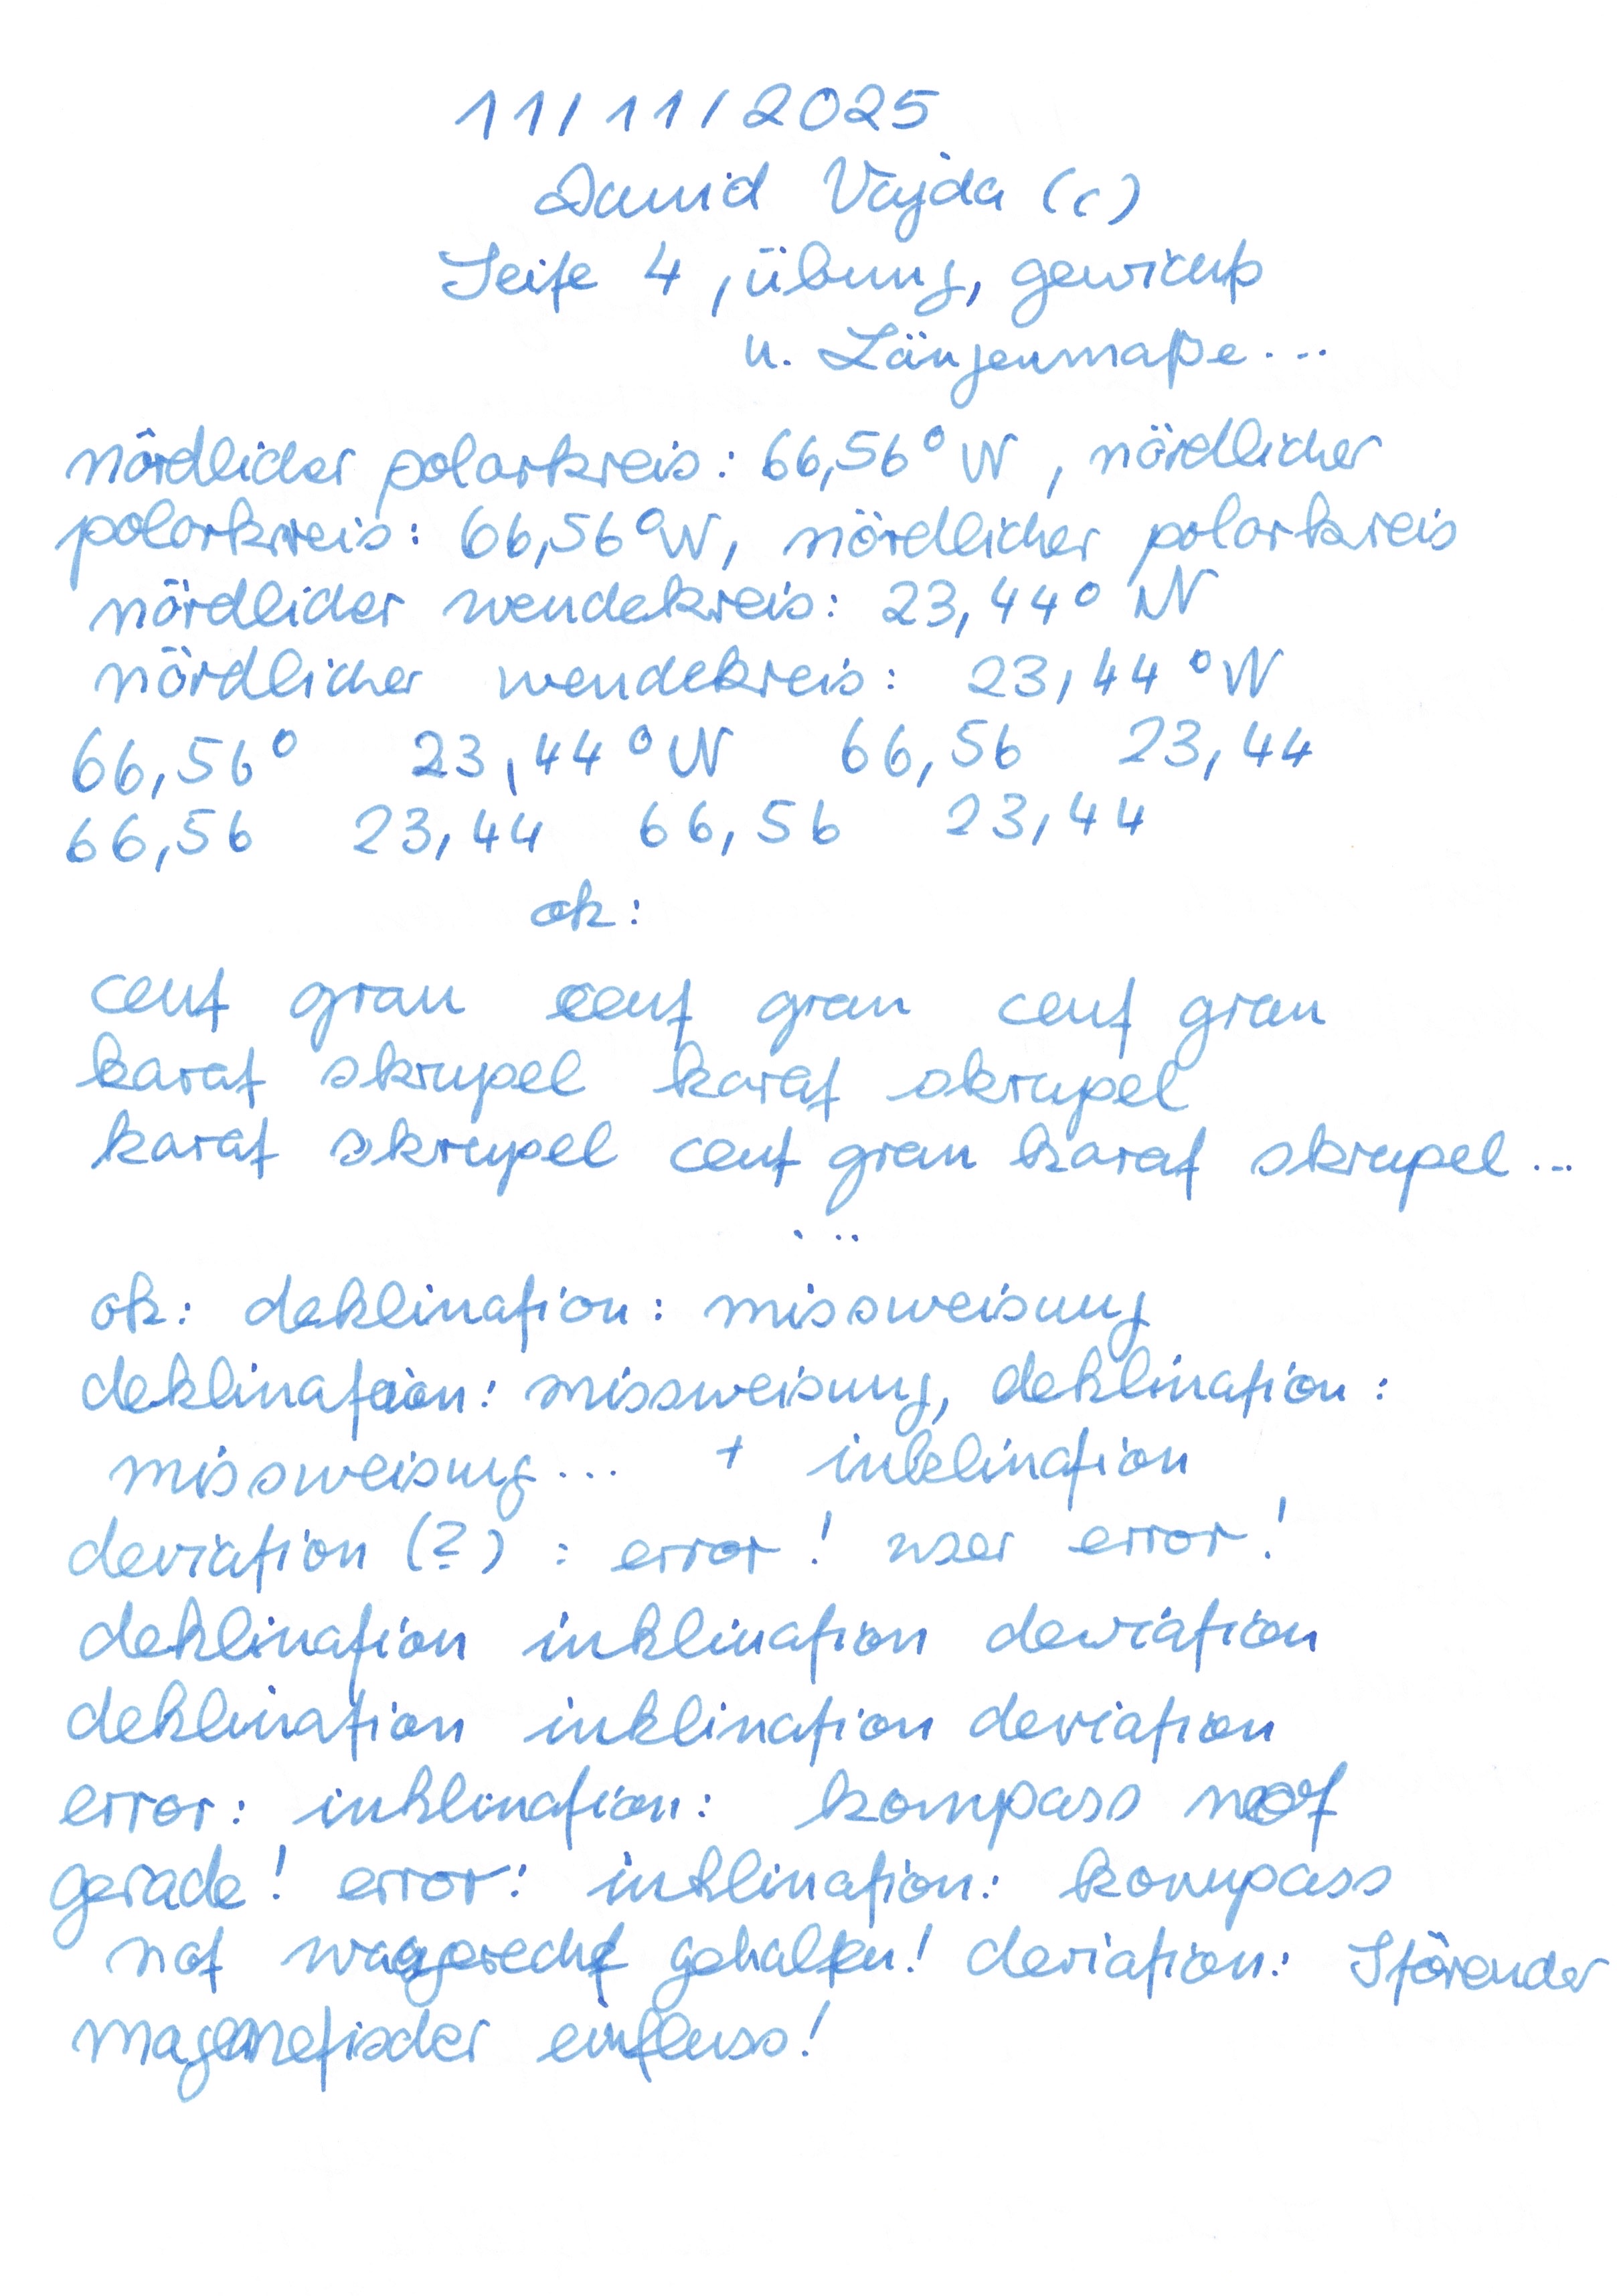 11/11/2025
David Vajda (c)
Seite 4, übung, gewichts
u. Längenmaße...
nördlicher polarkreis: 66,56° N, nördlicher
polarkreis: 66,56° N, nördlicher polarkreis
nördlicher wendekreis: 23,44° N
nördlicher wendekreis: 23,44° N
66,56° 23,44° N 66,56 23,44
66,56 23,44 66,56 23,44
ok:
cent gran cent gran cent gran
karat skrupel karat skrupel
karat skrupel cent gran karat skrupel...
...
ok: deklination: missweisung
deklination: missweisung, deklination:
missweisung... + inklination
deviation (?) : error! user error!
deklination inklination deviation
deklination inklination deviation
error: inklination: kompass not
gerade! error: inklination: kompass
not wagerecht gehalten! deviation: Störender
magenetischer einfluss!